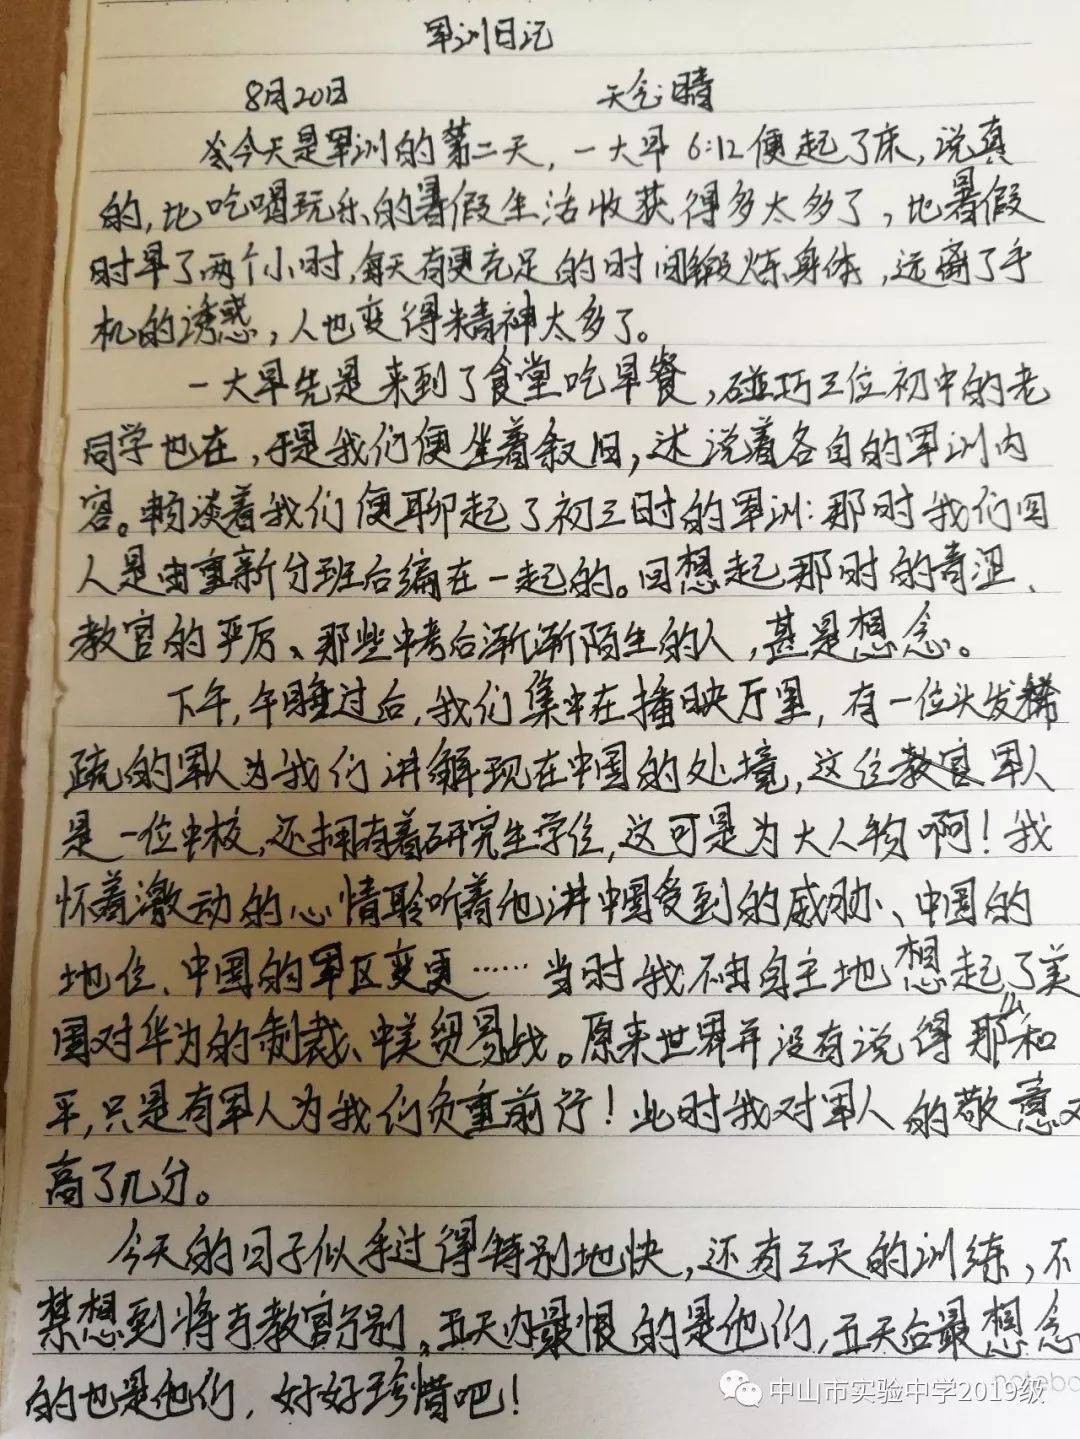 军训日记
8月20日 天气:晴
今天是军训的第二天,一大早6:12便起了床,说真
的,比吃喝玩乐的暑假生活收获得多太多了,比暑假
时早了两个小时,每天有更充足的时间锻炼身体,远离了手
机的诱惑,人也变得精神太多了。
一大早先是来到了食堂吃早餐,碰巧三位初中的老
同学也在,于是我们便坐着叙旧,述说着各自的军训内
容。畅谈着我们便聊起了初三时的军训:那时我们四
人是由重新分班后编在一起的。回想起那时的青涩、
教官的严厉、那些中考后渐渐陌生的人,甚是想念。
下午,午睡过后,我们集中在播映厅里,有一位头发稀
疏的军人为我们讲解现在中国的处境,这位军人
是一位中校,还拥有着研究生学位,这可是为大人物啊!我
怀着激动的心情聆听着他讲中国受到的威胁、中国的
地位、中国的军区变更……当时我不由自主地想起了美
国对华为的制裁、中美贸易战。原来世界并没有说得那么和
平,只是有军人为我们负重前行!此时我对军人的敬意又
高了几分。
今天的日子似乎过得特别地快,还有三天的训练,不
禁想到将与教官分别,五天内最恨的是他们,五天后最想念
的也是他们,好好珍惜吧!
notebo
中山市实验中学2019级